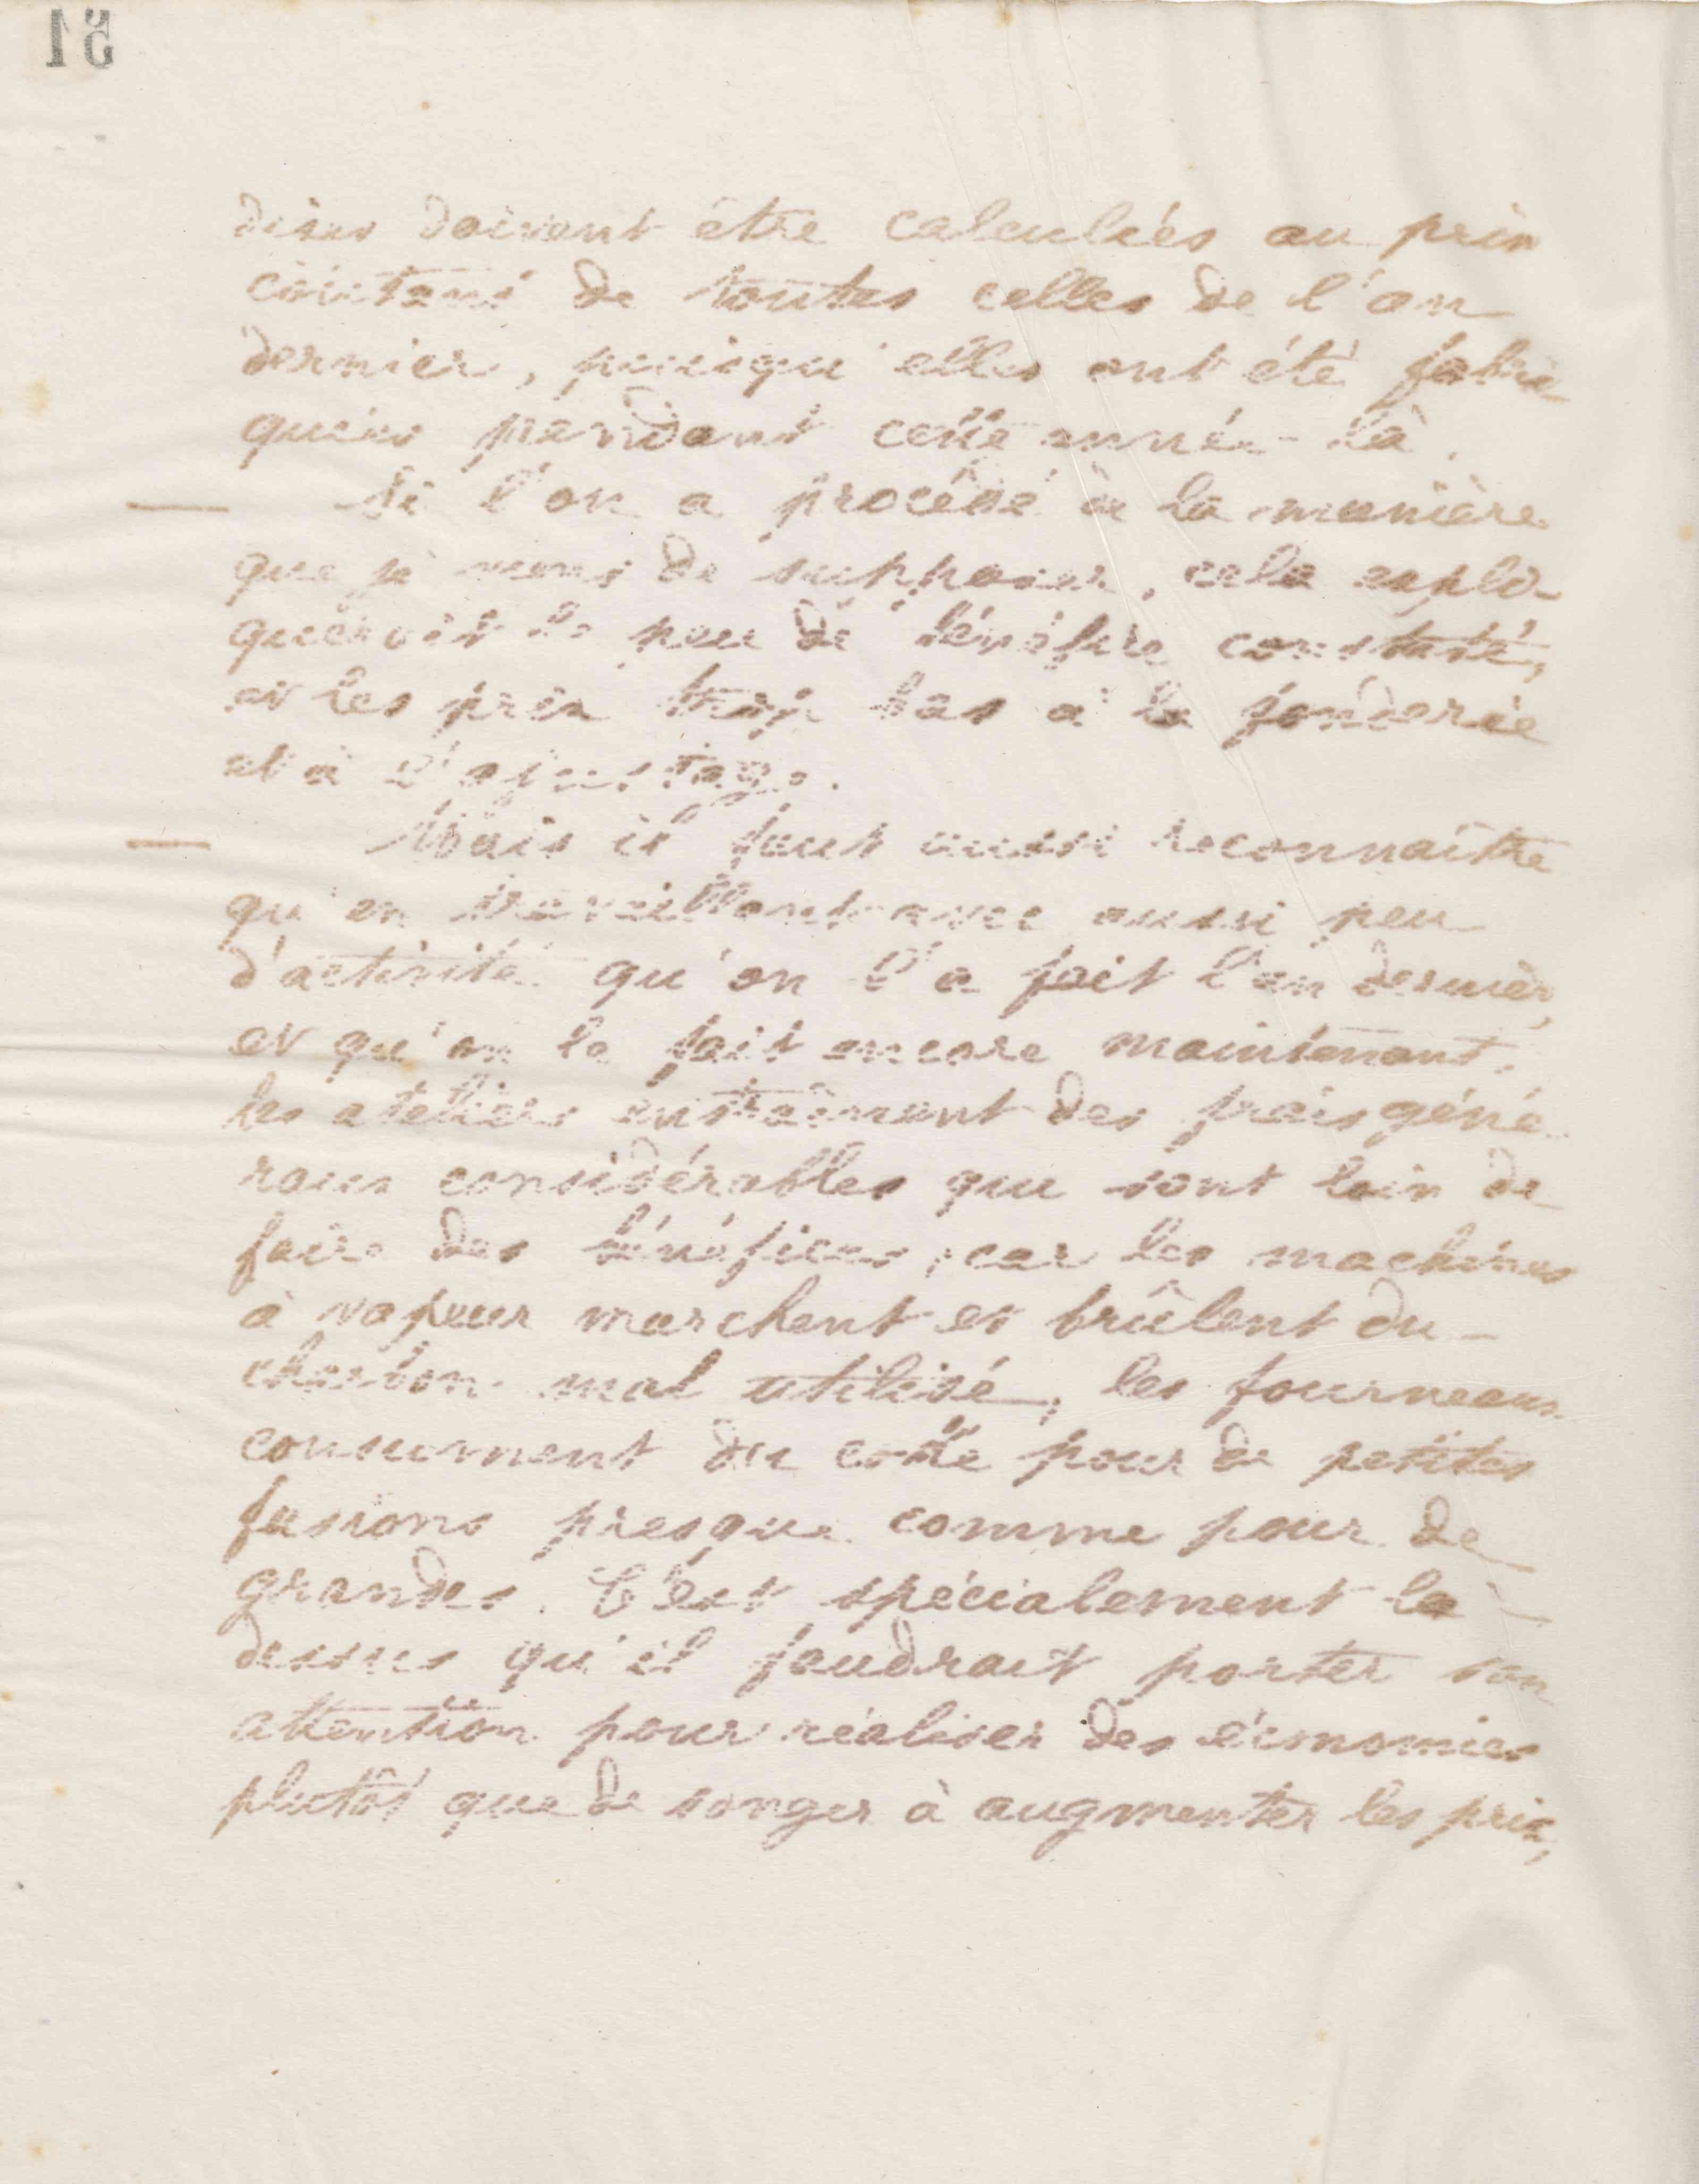 51
dises doivent être calculées au prix
coûtant de toutes celles de l'an
dernier, puisqu'elles ont été fabri-
quées pendant cette année-là.
Si l'on a procédé de la manière
que je viens de supposer, cela expli-
querait le peu de bénéfice constaté,
et les prix trop bas à la fonderie
et à l'ajustage.
Mais il faut aussi reconnaître
qu'en travaillant avec aussi peu
d'activité qu'on l'a fait l'an dernier,
et qu'on le fait encore maintenant,
les ateliers entraînent des frais géné-
raux considérables qui sont loin de
faire des bénéfices, car les machines
à vapeur marchent et brûlent du
charbon mal utilisé, les fourneaux
consument du coke pour de petites
fusions presque comme pour de
grandes. C'est spécialement là-
dessus qu'il faudrait porter son
attention pour réaliser des économies
plutôt que de songer à augmenter les prix,